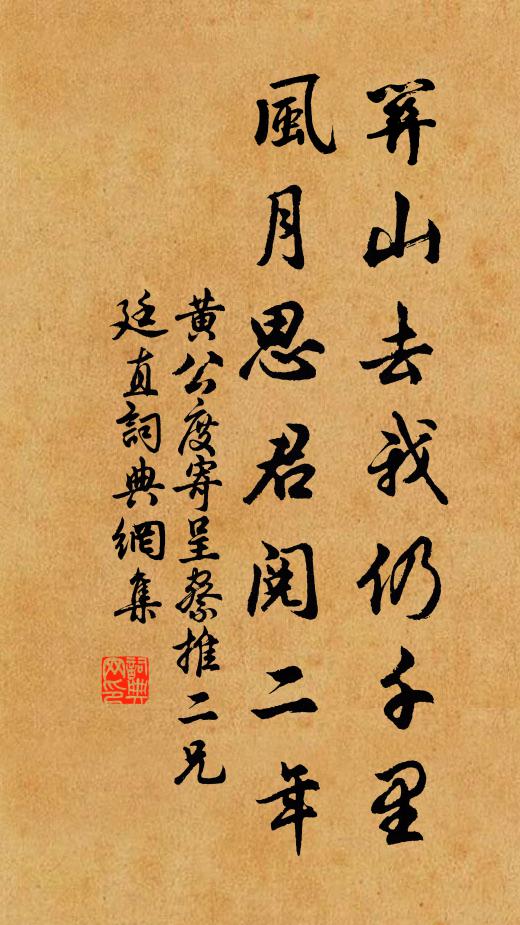 關山去我仍千里
風月思君閱二年
黃公度寄呈察推二兄
廷直詞典網集
詞典網印